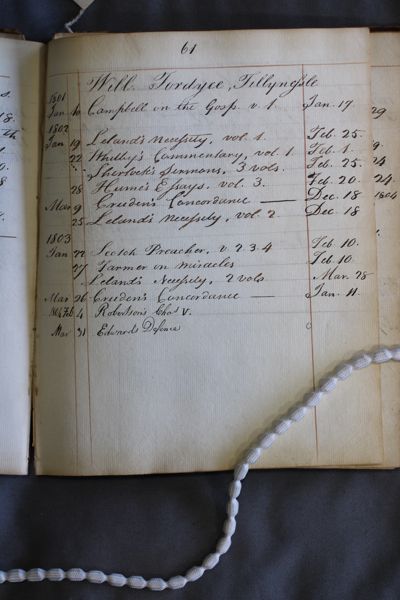 61
Will. Fordyce, Tillynessle
1801
Jan. 10 Campbell on the Gosp. v. 1 Jan. 19.
1802
Jan 19 Leland's Necessity, vol. 1. Feb. 25.
22 Whitby's Commentary, vol. 1 Feb. 1.
Sherlock's Sermons, 3 vols. Feb. 25.
28 Hume's Essays, vol. 3. Feb. 20.
Mar. 9 Cruden's Concordance — Dec. 18
25 Leland's Necessity, vol. 2 Dec. 18
1803
Jan 22 Scotch Preacher, v. 2. 3. 4 Feb. 10.
27 Farmer on Miracles Feb 10.
Leland's Necessity, 2 vols Mar. 28
Mar 26 Cruden's Concordance — Jan. 11.
1804 Feb. 4 Robertson's Chas V.
Mar 31 Edwards Defence
29
9.
24.
24.
1804